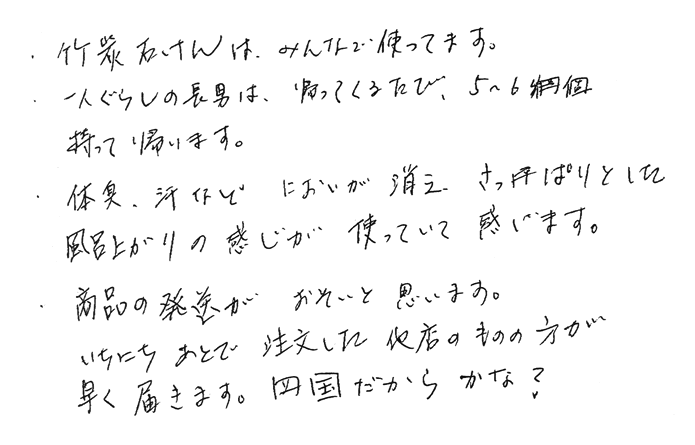 ・竹炭石けんは、みんなで使ってます。
・一人ぐらしの長男は、帰ってくるたび、5~6個
持って帰います。
・体臭、汗など においが消え、さっぱりとした
風呂上がりの感じが 使っていて 感じます。
・商品の発送が おそいと 思います。
いちにち あとで 注文した 他店のものの方が
早く 届きます。四国だから かな?